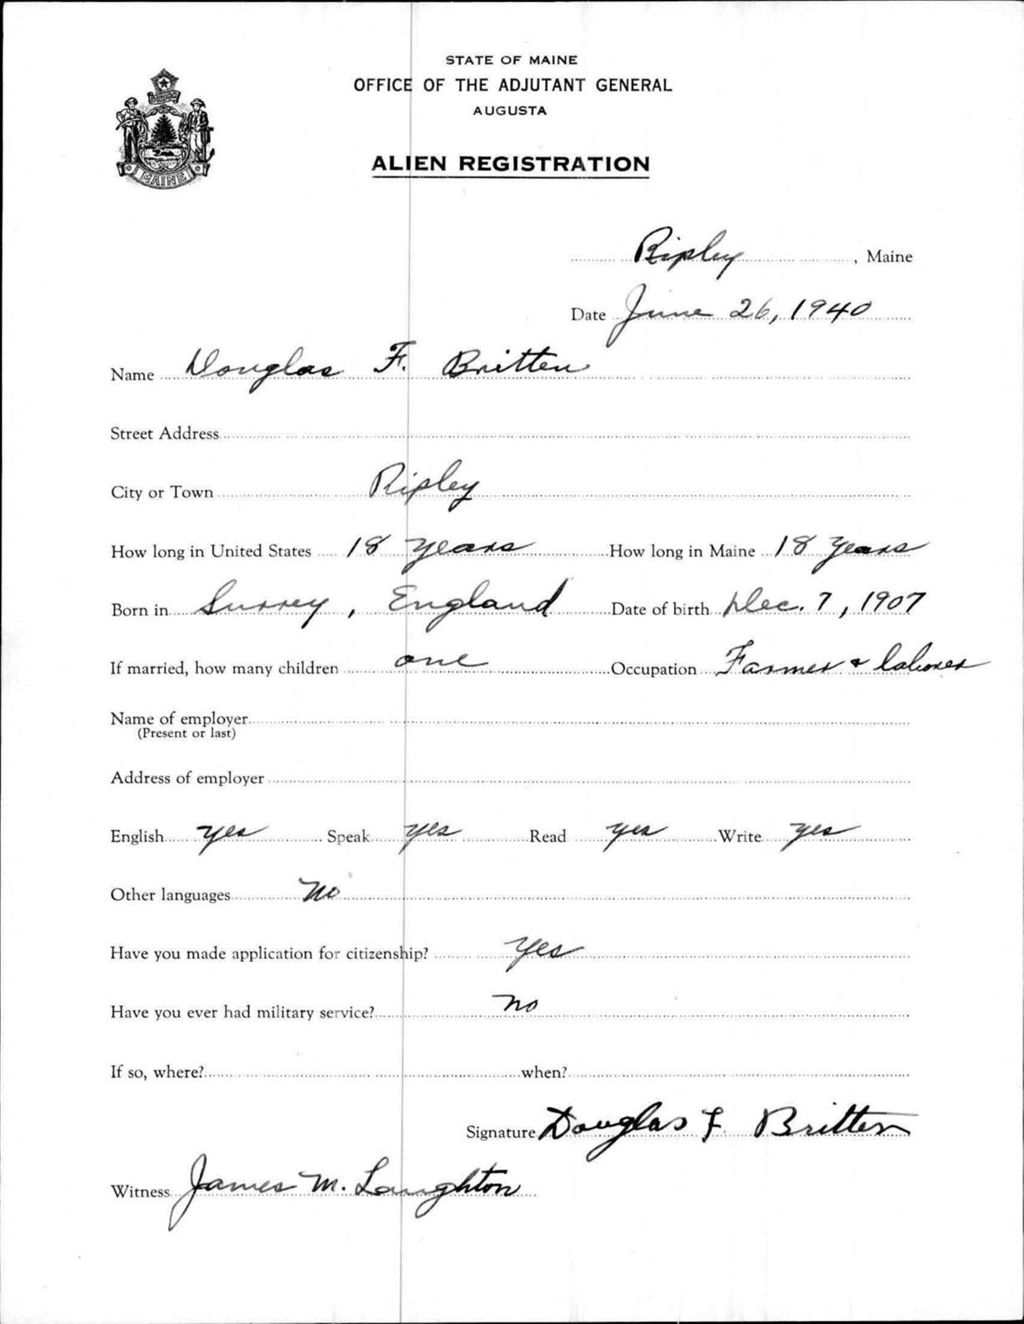 STATE OF MAINE
OFFICE OF THE ADJUTANT GENERAL
AUGUSTA
ALIEN REGISTRATION
MAINE
Ripley, Maine
Date June 26, 1940
Name Douglas F. Britten
Street Address
City or Town Ripley
How long in United States 18 years How long in Maine 18 years
Born in Surrey, England Date of birth Dec. 7, 1907
If married, how many children one Occupation Farmer & laborer
Name of employer
(Present or last)
Address of employer
English yes Speak yes Read yes Write yes
Other languages no
Have you made application for citizenship? Yes
Have you ever had military service? no
If so, where? when?
Signature Douglas F Britten
Witness James M. Laughton